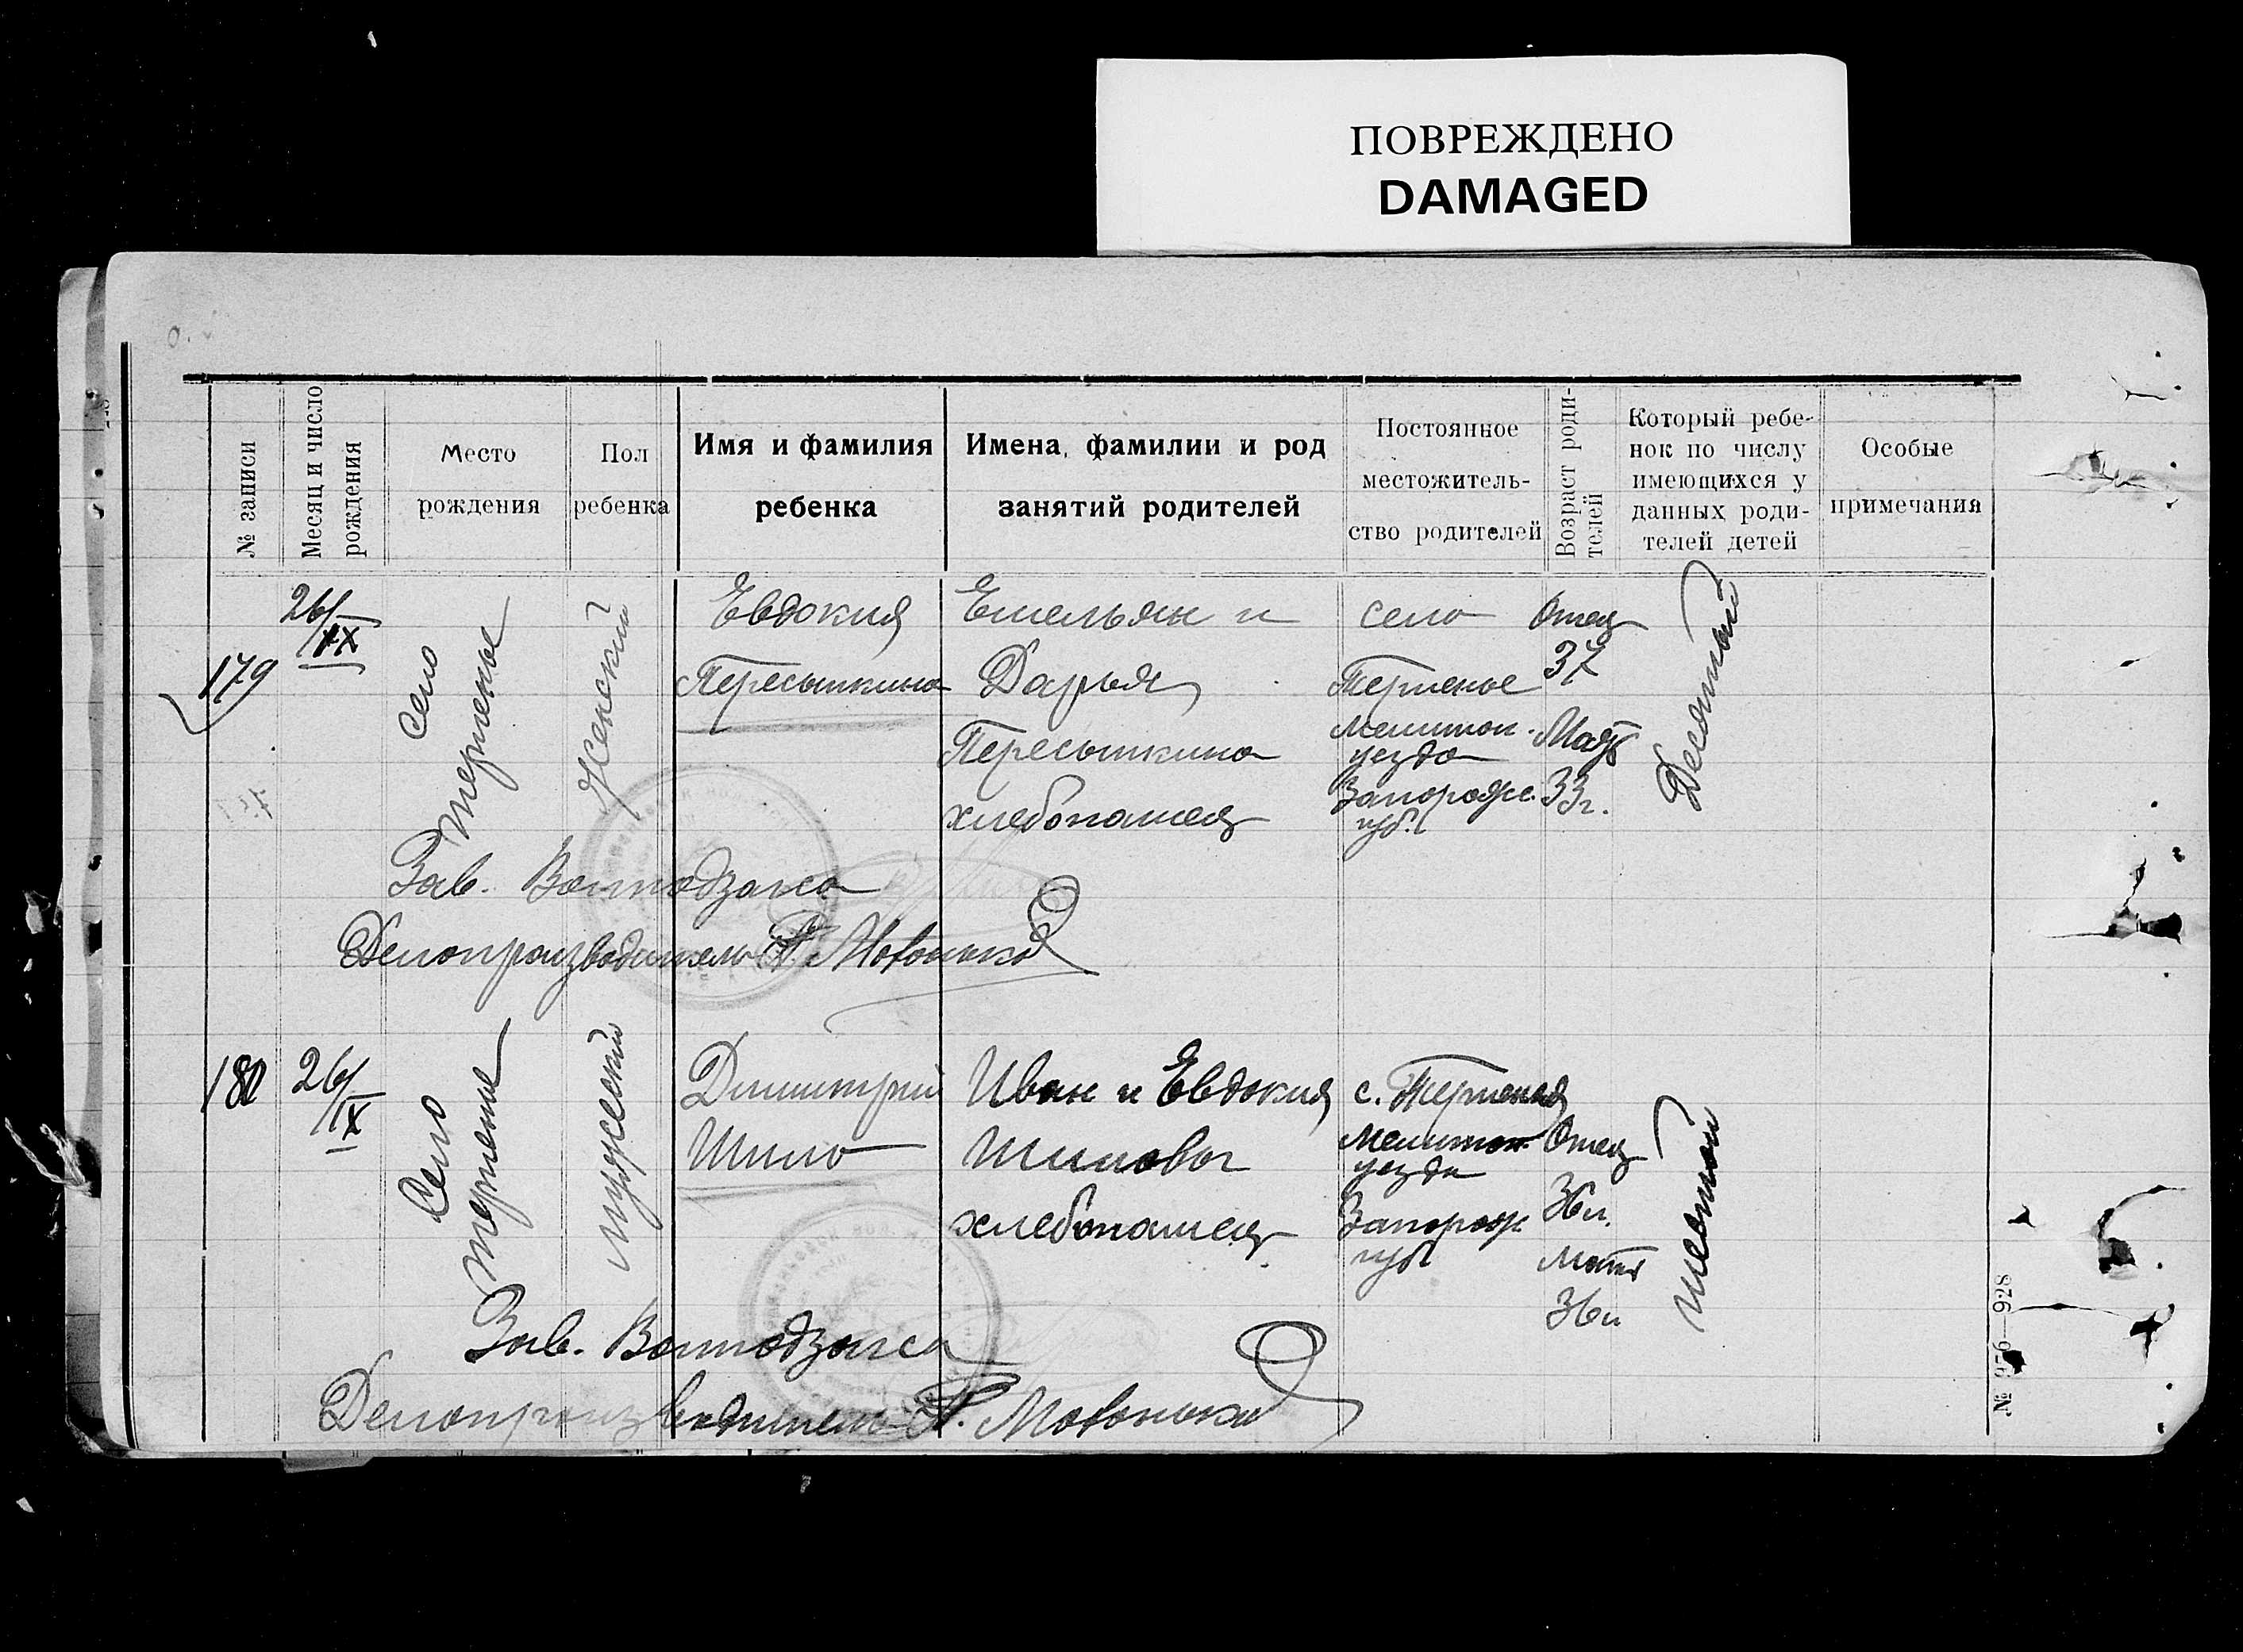 ПОВРЕЖДЕНО
DAMAGED
№ записи
Месяц и число
рождения
Место
рождения
Пол
ребенка
Имя и фамилия
ребенка
Имена, фамилии и род
занятий родителей
Постоянное
местожитель-
ство родителей
Возраст роди-
телей
Который ребе-
нок по числу
имеющихся у
данных роди-
телей детей
Особые
примечания
179
26/IX
Село
Терпенье
Женский
Евдокия
Пересыпкина
Емельян и
Дарья
Пересыпкина
хлебопашец
село
Терпенье
Мелитоп.
уезда
Запорожс.
губ.
Отец
37
Мать
33 г.
Десятый
Зав. Волподзагса
Делопроизводитель
180
26/IX
Село
Терпенье
мужеский
Димитрий
Шило
Иван и Евдокия
Шиловы
хлебопашец
с. Терпенья
Мелитоп.
уезда
Запорож
губ
Отец
36 л.
Мать
36 л
шестой
Зав. Волподзагса
Делопроизводитель